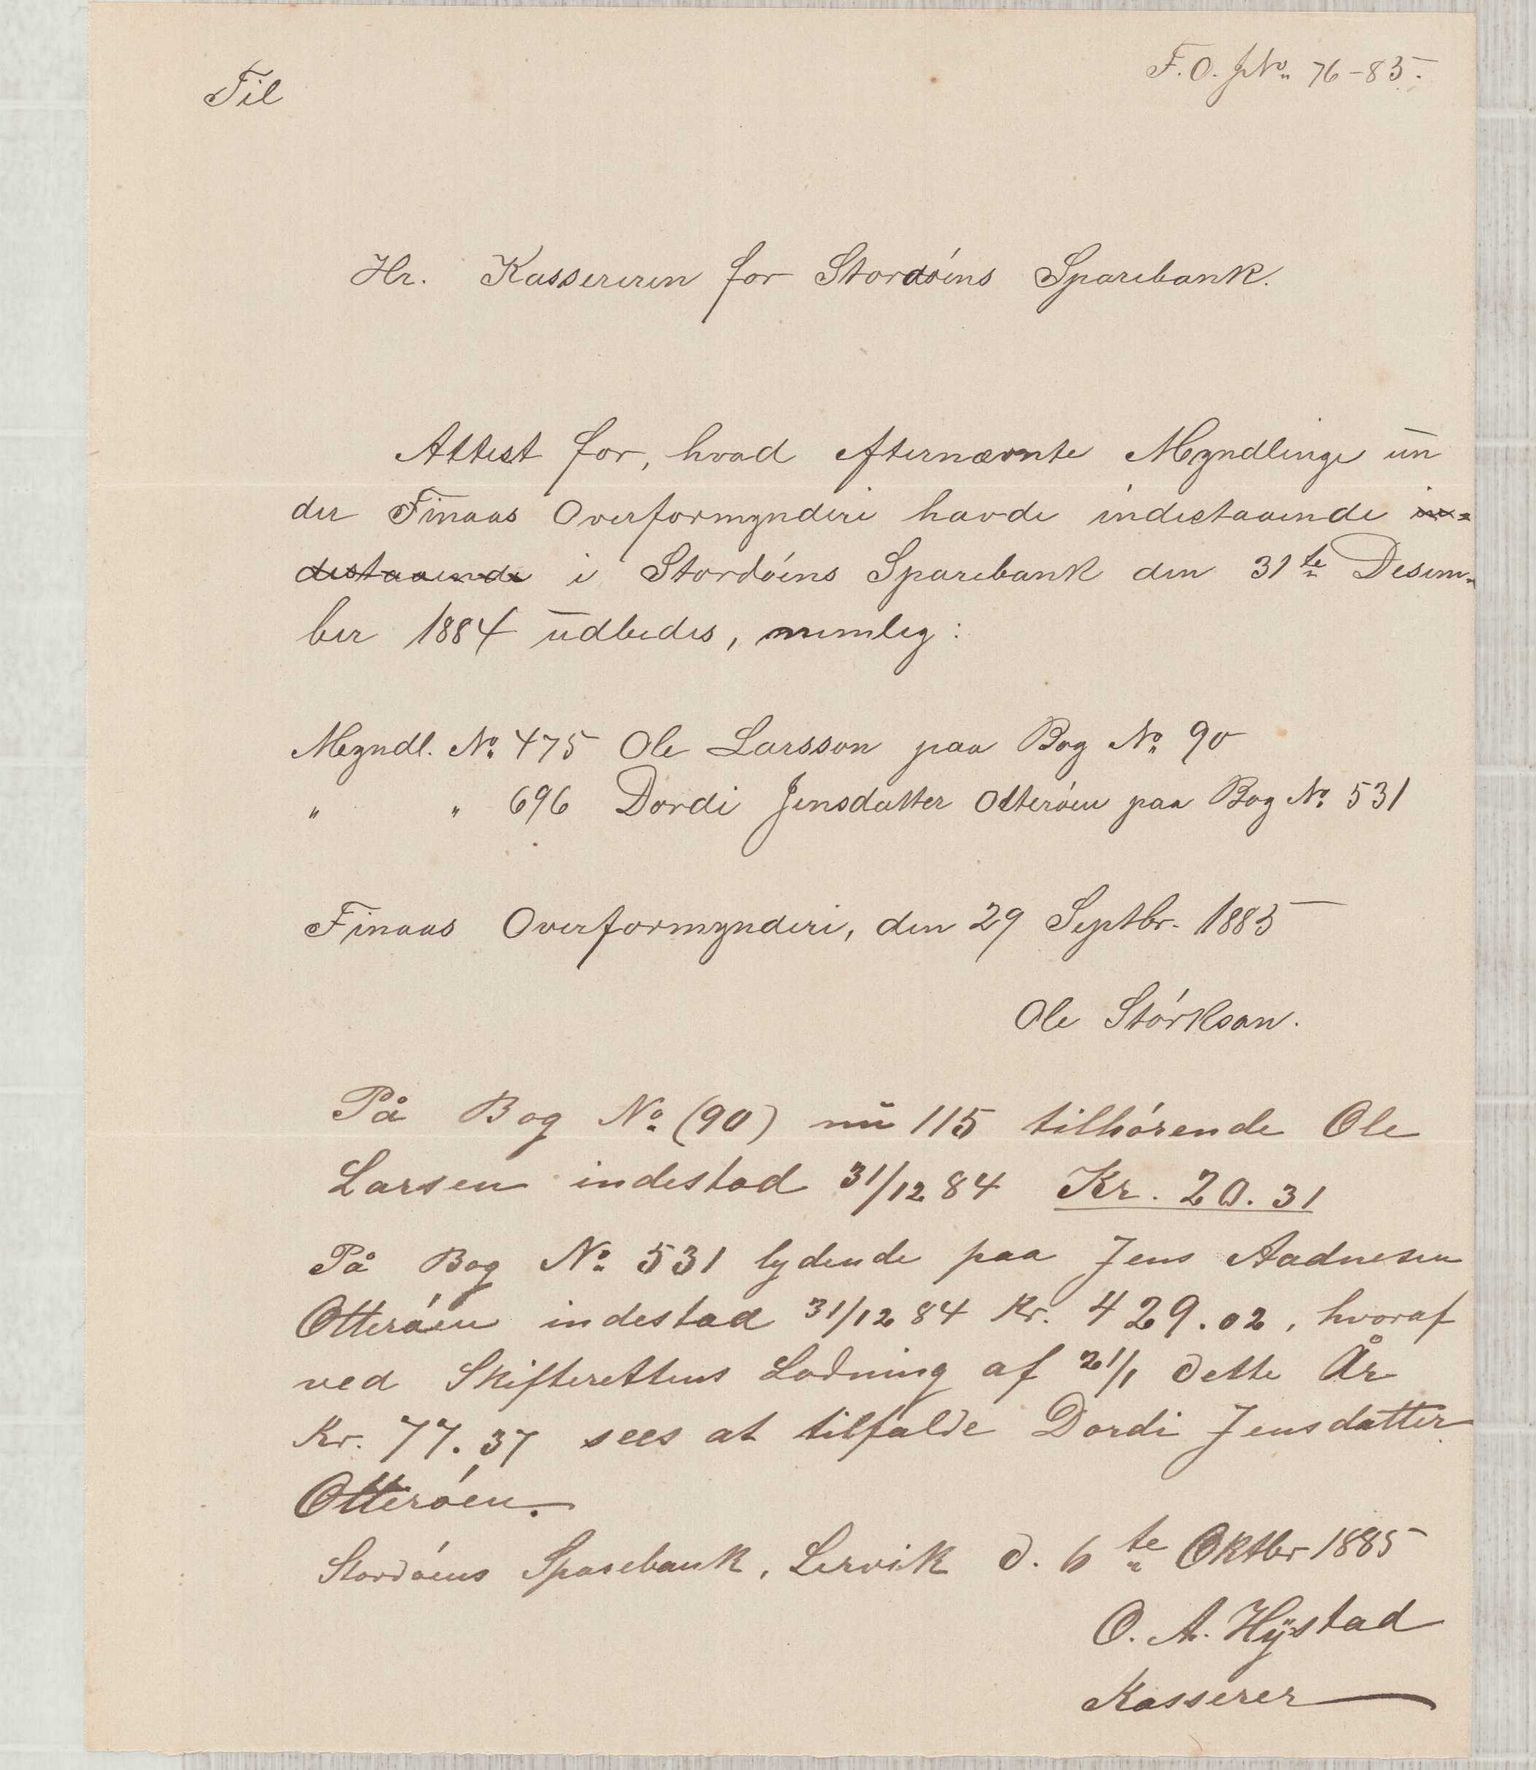 F. O. JNo. 76-85.
Til
Hr. Kassereren for Stordøens Sparebank.
Attest for, hvad efternævnte Myndlinge un
der Finaas Overformynderi havde indestaaende in-
destaaende i Stordøens Sparebank den 31te Desem-
ber 1884 udbedes, nemleg:
Myndl. No. 475 Ole Larsson paa Bog No. 90
" " 696 Dordi Jensdatter Otterøen paa Bog No. 531
Finaas Overformynderi, den 29 Septbr. 1885
Ole Størkson.
På Bog No. (90) nu 115 tilhørende Ole
Larsen indestod 31/12 84 Kr. 20.31
På Bog No. 531 lydende paa Jens Aadnesen
Otterøen indestod 31/12 84 Kr. 429.02, hvoraf
ved Skifterettens Lodning af 21/1 dette År
Kr. 77.37 sees at tilfalde Dordi Jensdatter
Otterøen.
Stordøens Sparebank, Lervik d. 6te Oktbr 1885
O. A. Hÿstad
Kasserer